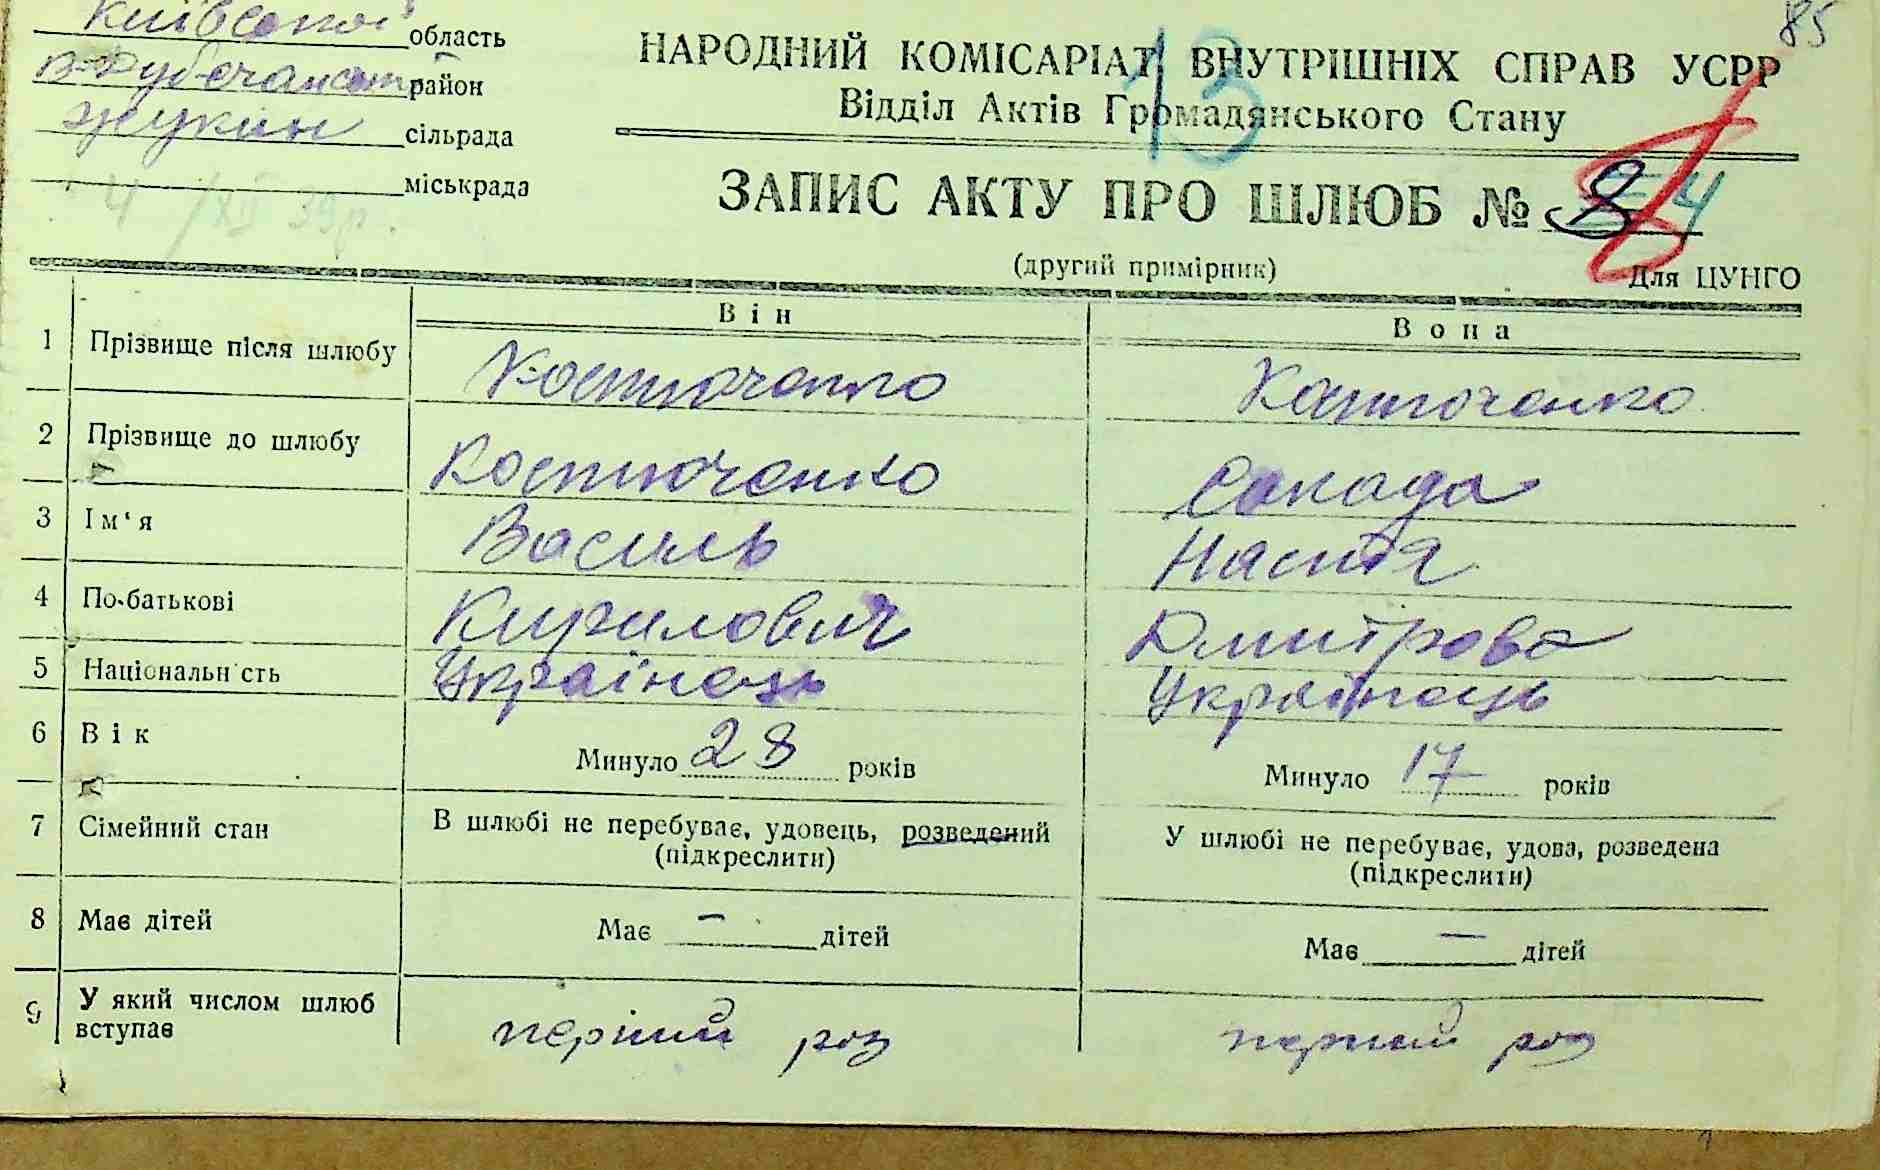 Київської область
85
В-Дубечанськ район
Жукин сільрада
міськрада
4/XII 39р.
НАРОДНИЙ КОМІСАРІАТ ВНУТРІШНІХ СПРАВ УСРР
13
Відділ Актів Громадянського Стану
ЗАПИС АКТУ ПРО ШЛЮБ № 8 4
(другий примірник)
Для ЦУНГО
Він Вона
1 Прізвище після шлюбу Костюченко Костюченко
2 Прізвище до шлюбу Костюченко Сакада
3 Ім'я Василь Настя
4 По-батькові Кирилович Дмитрова
5 Національність Українець Українець
6 Вік Минуло 28 років Минуло 17 років
7 Сімейний стан В шлюбі не перебуває, удовець, розведений У шлюбі не перебуває, удова, розведена
(підкреслити) (підкреслити)
8 Має дітей Має — дітей Має — дітей
9 У який числом шлюб
вступає перший раз перший раз